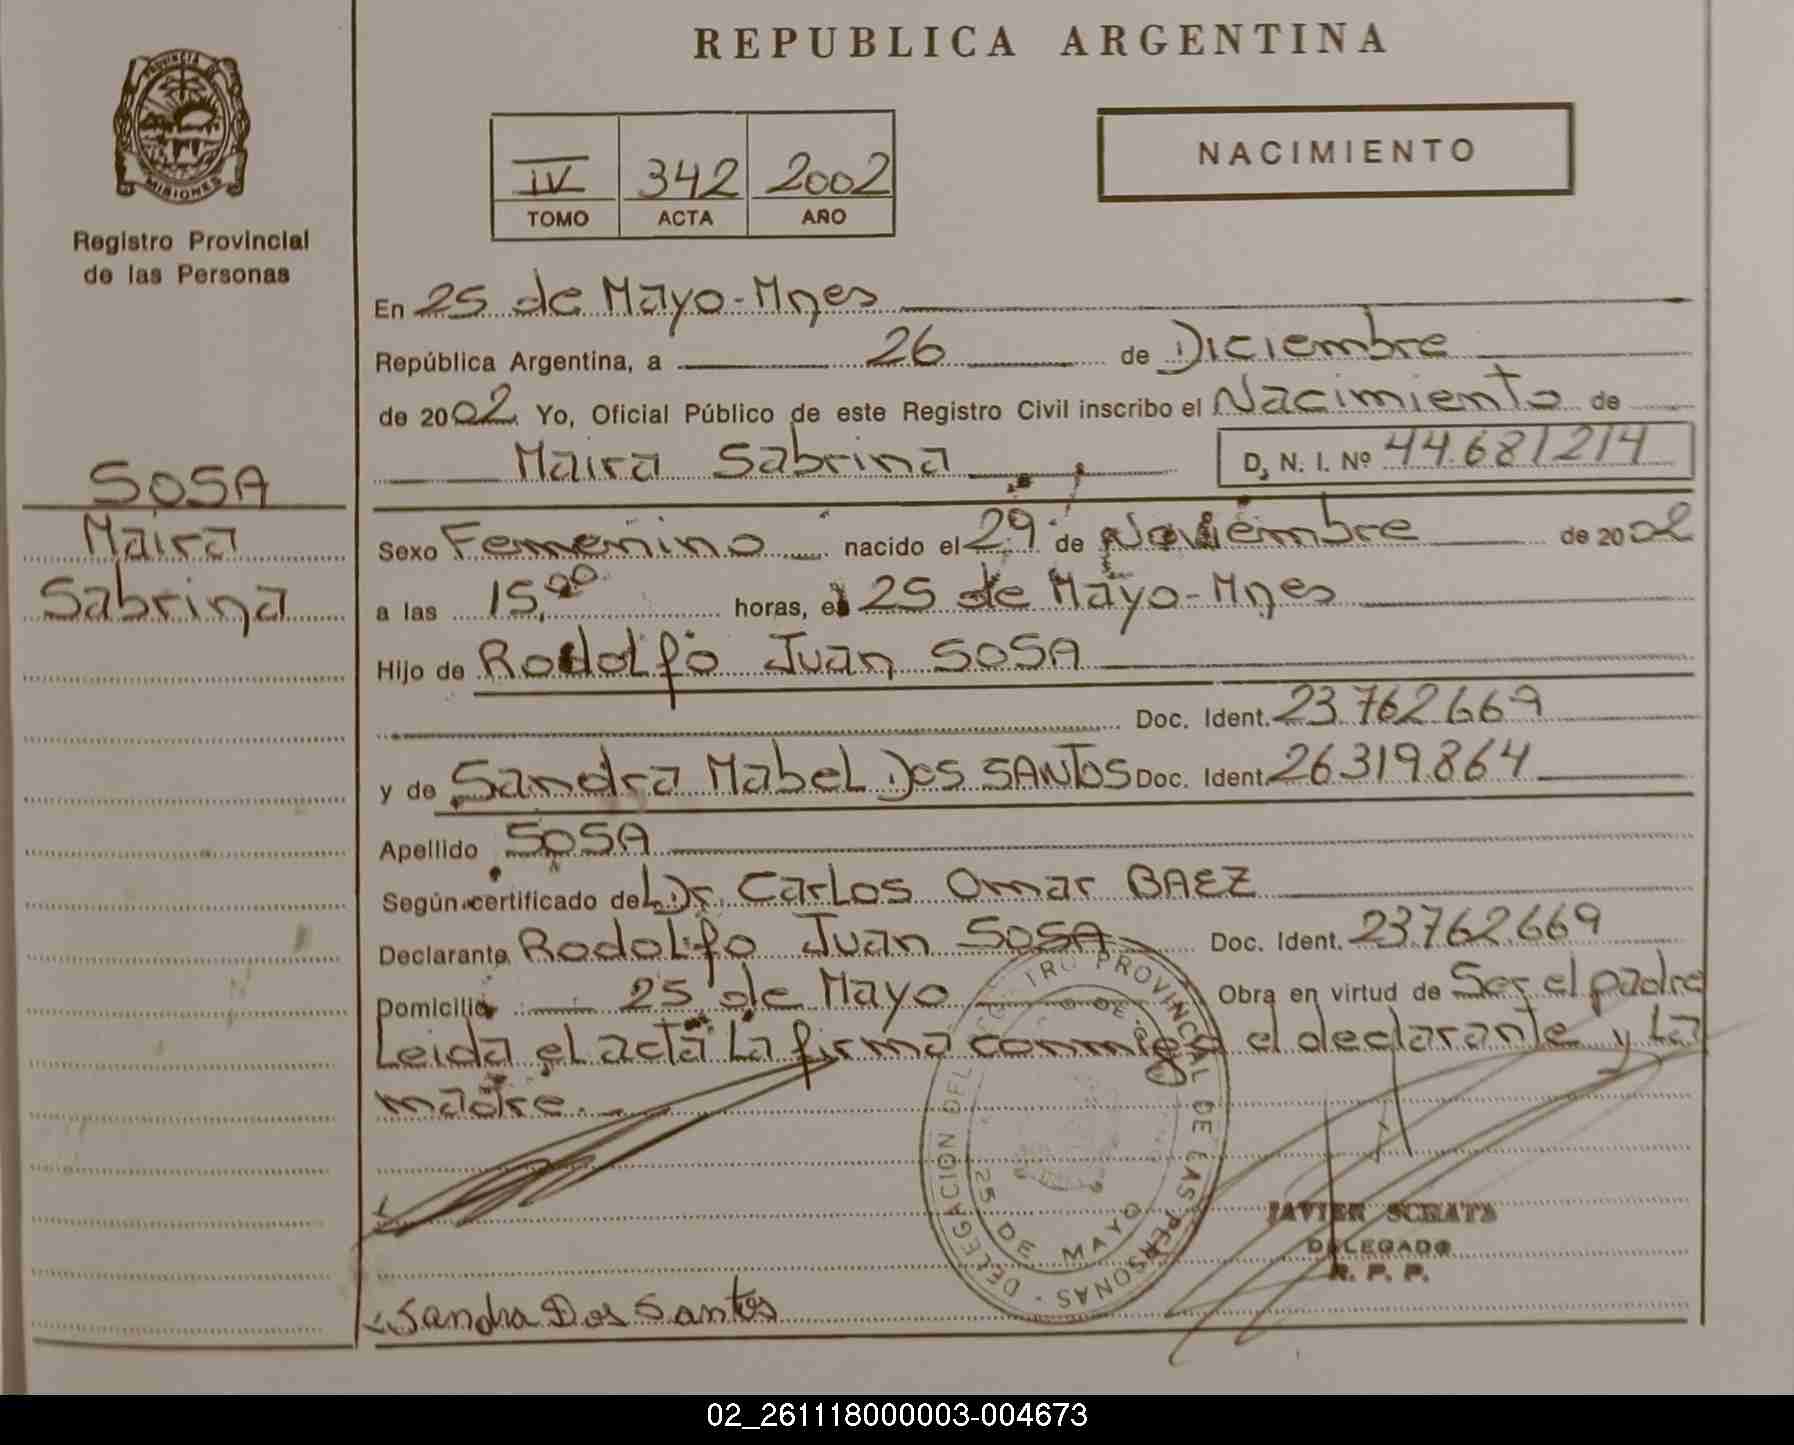 REPUBLICA ARGENTINA
PROVINCIA DE
MISIONES
Registro Provincial
de las Personas
IV 342 2002
TOMO ACTA AÑO
NACIMIENTO
SOSA
Maira
Sabrina
En 25 de Mayo-Mnes
República Argentina, a 26 de Diciembre
de 2002 Yo, Oficial Público de este Registro Civil inscribo el Nacimiento de
Maira Sabrina D. N. I. Nº 44.681214
Sexo Femenino nacido el 29 de Noviembre de 2002
a las 15,00 horas, en 25 de Mayo-Mnes
Hijo de Rodolfo Juan SOSA
Doc. Ident. 23.762.669
y de Sandra Mabel Dos SANTOS Doc. Ident. 26.319.864
Apellido SOSA
Según certificado de Dr. Carlos Omar BAEZ
Declarante Rodolfo Juan SOSA Doc. Ident. 23.762.669
Domicilio 25 de Mayo Obra en virtud de Ser el padre
Leida el acta la firma conmigo el declarante y la
madre.
DELEGACION DEL REGISTRO PROVINCIAL DE LAS PERSONAS
25 DE MAYO
JAVIER SCHATS
DELEGADO
R. P. P.
Sandra Dos Santos
02_261118000003-004673